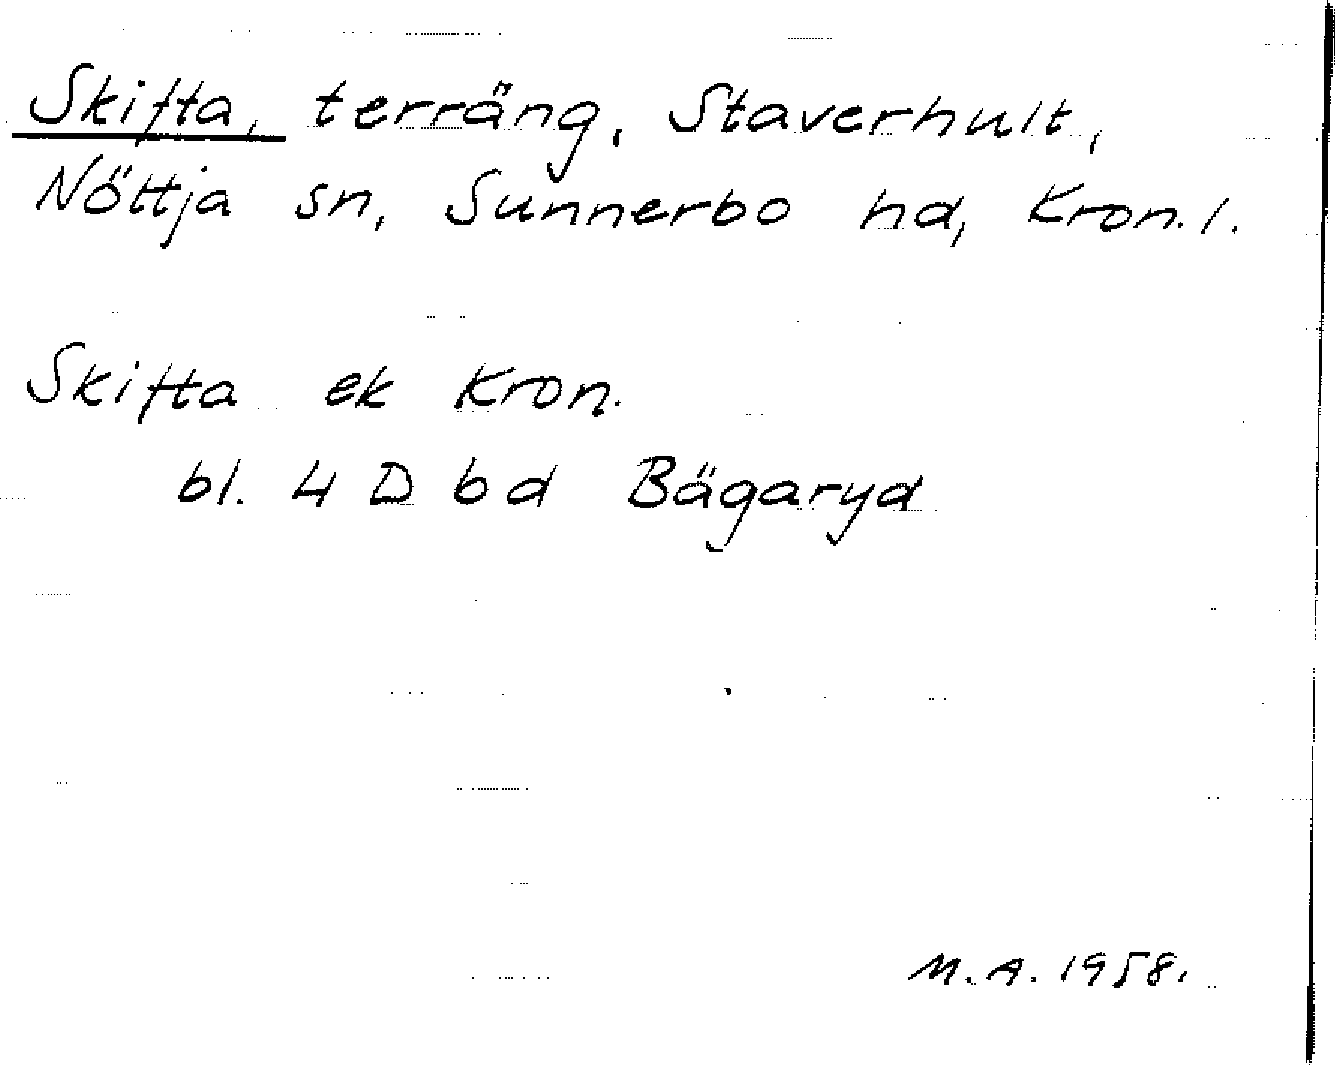 Skifta, terräng, Staverhult,
Nöttja sn, Sunnerbo hd, Kron. l.
Skifta ek Kron.
bl. 4 D b d Bägaryd
M.A. 1958.